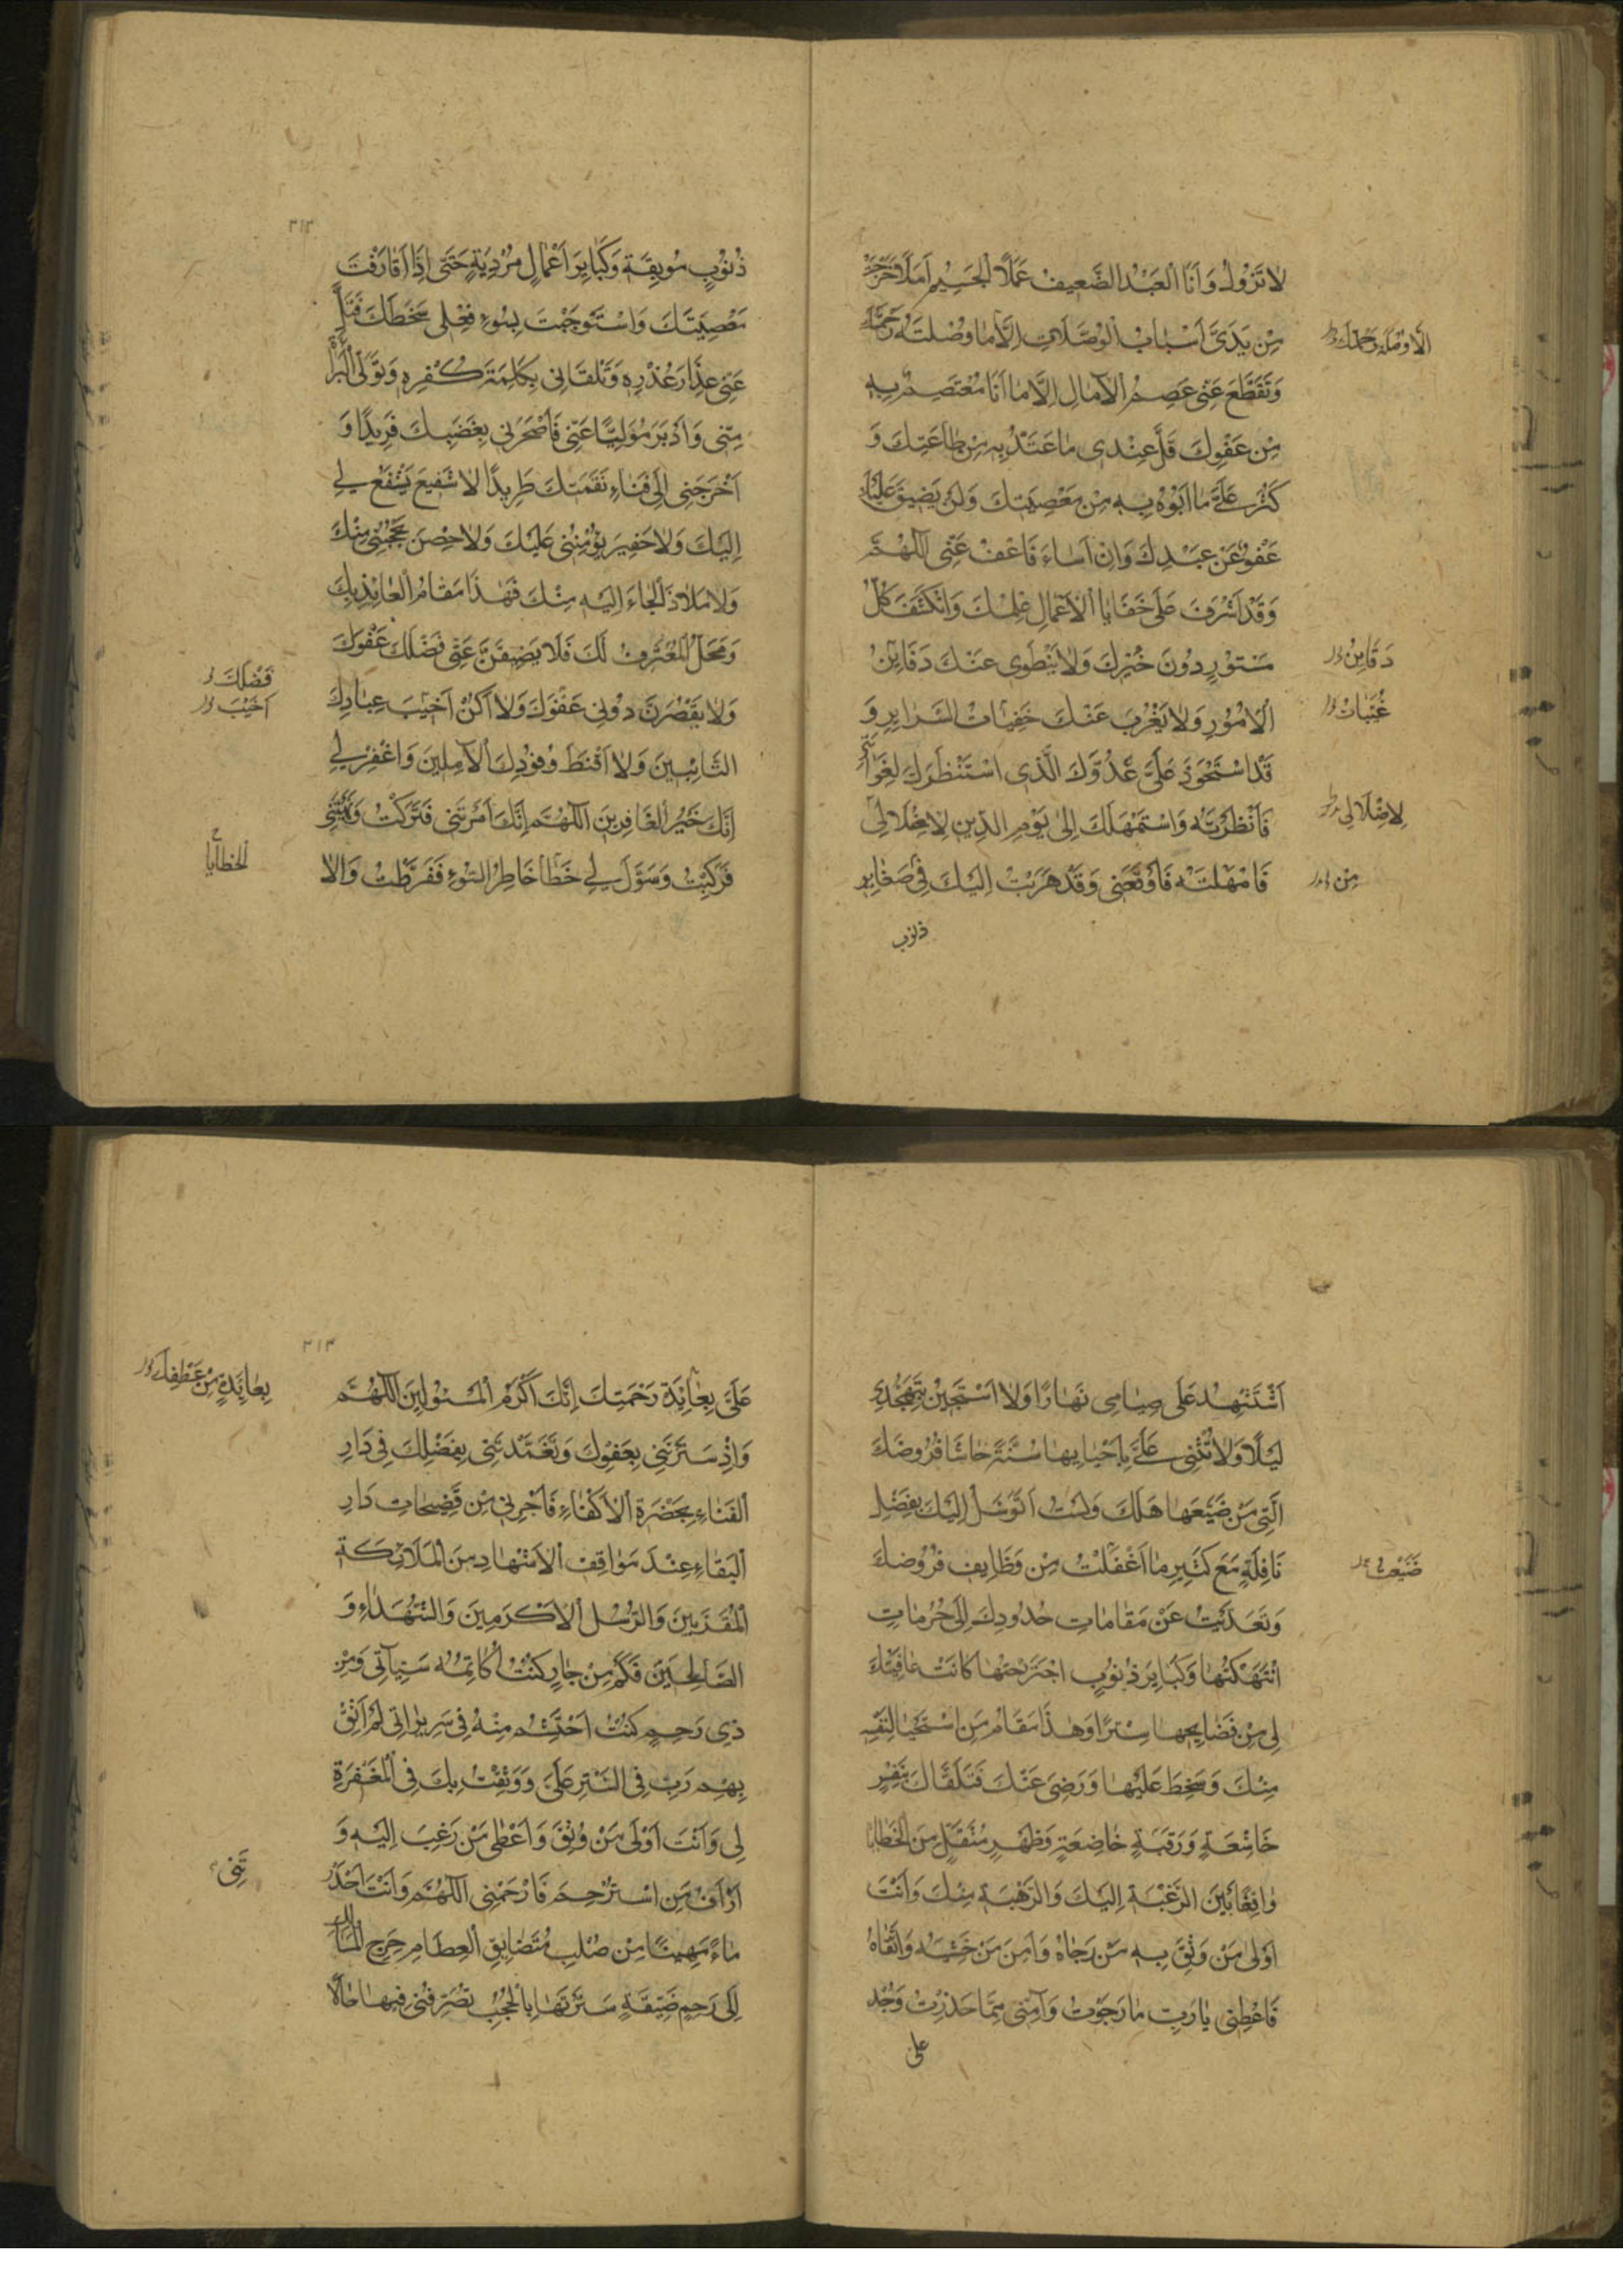 لا تَزُولُ وَاَنَا الْعَبْدُ الضَّعِيفُ عَمَلًا الْجَسِيمُ اَمَلًا خَرَجَتْ
مِنْ يَدَىَّ اَسْبَابُ الْوُصُلَاتِ اِلَّا مَا وَصَلَتْهُ رَحْمَتُكَ
وَتَقَطَّعَ عَنِّى عِصَمُ الْآمَالِ اِلَّا مَا اَنَا مُعْتَصِمٌ بِهِ
مِنْ عَفْوِكَ قَلَّ عِنْدِى مَا عْتَدُّ بِهِ مِنْ طَاعَتِكَ وَ
كَثُرَ عَلَىَّ مَا اَبُوْءُ بِهِ مِنْ مَعْصِيَتِكَ وَلَنْ يَضِيقَ عَلَيْكَ
عَفْوٌ عَنْ عَبْدِكَ وَاِنْ اَسَاءَ فَاعْفُ عَنِّى اَللّهُمَّ
وَقَدْ اَشْرَفَ عَلَى خَفَايَا الْاَعْمَالِ عِلْمُكَ وَانْكَشَفَ كُلُّ
مَسْتُورٍ دُونَ خُبْرِكَ وَلَا يَنْطَوِى عَنْكَ دَقَايِقُ
دَقَايِقُ
الْاُمُورِ وَلَا يَعْزُبُ عَنْكَ خَفِيَّاتُ السَّرَايِرِ وَ
قَدِ اسْتَحْوَذَ عَلَىَّ عَدُوُّكَ الَّذِى اسْتَنْظَرَكَ لِغَوَايَتِى
فَاَنْظَرْتَهُ وَاسْتَمْهَلَكَ اِلَى يَوْمِ الدِّينِ لِاِضْلَالِى
لِاِضْلَالِى
فَامْهَلْتَهُ فَاَوْقَعَنِى وَقَدْ هَرَبْتُ اِلَيْكَ فِى صَغَايِرِ
مِنْ
ذنوب
٣١٣
ذُنُوبٍ مُوبِقَةٍ وَكَبَايِرَ اَعْمَالٍ مُرْدِيَةٍ حَتَّى اِذَا قَارَفْتُ
مَعْصِيَتَكَ وَاسْتَوْجَبْتُ بِسُوءِ فِعْلِى سَخَطَكَ فَتَلَ
عَنِّى عِذَارَ غُدْرِهِ وَتَلَقَّانِى بِكَلِمَةِ كُفْرِهِ وَتَوَلَّى الْبَرَاءَةَ
مِنِّى وَاَدْبَرَ مُوَلِّيًا عَنِّى فَاَصْحَرَنِى بِغَضَبِكَ فَرِيدًا وَ
اَخْرَجَنِى اِلَى فِنَاءِ نَقِمَتِكَ طَرِيدًا لَا شَفِيعَ يَشْفَعُ لِى
اِلَيْكَ وَلَا خَفِيرَ يُؤْمِنُنِى عَلَيْكَ وَلَا حِصْنَ يَحْجُبُنِى مِنْكَ
وَلَا مَلَاذَ اَلْجَاءُ اِلَيْهِ مِنْكَ فَهَذَا مَقَامُ الْعَائِذِ بِكَ
وَمَحَلُّ الْمُعْتَرِفِ لَكَ فَلَا يَضِيقَنَّ عَنِّى فَضْلُكَ
فَضْلُكَ
وَلَا يَقْصُرَنَّ دُونِى عَفْوُكَ وَلَا اَكُنْ اَخْيَبَ عِبَادِكَ
اَخْيَبَ
التَّائِبِينَ وَلَا اَقْنَطَ وُفُودِكَ الْآمِلِينَ وَاغْفِرْ لِى
اِنَّكَ خَيْرُ الْغَافِرِينَ اَللّهُمَّ اِنَّكَ اَمَرْتَنِى فَتَرَكْتُ وَنَهَيْتَنِى
الخطايا
فَرَكِبْتُ وَسَوَّلَ لِى خَطَأَ خَاطِرُ السُّوءِ فَفَرَّطْتُ وَلَا
اَسْتَشْهِدُ عَلَى صِيَامِى نَهَارًا وَلَا اَسْتَجِيرُ بِتَهَجُّدِى
لَيْلًا وَلَا تُثْنِى عَلَىَّ بِاِحْيَايِهَا سُنَّةٌ حَاشَا فُرُوضَكَ
الَّتِى مَنْ ضَيَّعَهَا هَلَكَ وَلَسْتُ اَتَوَسَّلُ اِلَيْكَ بِفَضْلِ
نَافِلَةٍ مَعَ كَثِيرِ مَا اَغْفَلْتُ مِنْ وَظَايِفِ فُرُوضِكَ
ضَيَّعْتُ
وَتَعَدَّيْتُ عَنْ مَقَامَاتِ حُدُودِكَ اِلَى حُرُمَاتٍ
انْتَهَكْتُهَا وَكَبَايِرِ ذُنُوبٍ اجْتَرَحْتُهَا كَانَتْ عَافِيَتُكَ
لِى مِنْ فَضَايِحِهَا سِتْرًا وَهَذَا مَقَامُ مَنِ اسْتَحْيَا لِنَفْسِهِ
مِنْكَ وَسَخِطَ عَلَيْهَا وَرَضِىَ عَنْكَ فَتَلَقَّاكَ بِنَفْسٍ
خَاشِعَةٍ وَرَقَبَةٍ خَاضِعَةٍ وَظَهْرٍ مُثْقَلٍ مِنَ الْخَطَايَا
وَاقِفًا بَيْنَ الرَّغْبَةِ اِلَيْكَ وَالرَّهْبَةِ مِنْكَ وَاَنْتَ
اَوْلَى مَنْ وَثِقَ بِهِ مَنْ رَجَاهُ وَآمَنَ مَنْ خَشِيَهُ وَاتَّقَاهُ
فَاَعْطِنِى يَا رَبِّ مَا رَجَوْتُ وَآمِنِّى مِمَّا حَذِرْتُ وَعُدْ
على
٣١٤
عَلَىَّ بِعَائِدَةِ رَحْمَتِكَ اِنَّكَ اَكْرَمُ الْمَسْئُولِينَ اَللّهُمَّ
بِعَايِدَةٍ مِنْ عَطْفِكَ
وَاِذْ سَتَرْتَنِى بِعَفْوِكَ وَتَغَمَّدْتَنِى بِفَضْلِكَ فِى دَارِ
الْفَنَاءِ بِحَضْرَةِ الْاَكْفَاءِ فَاَجِرْنِى مِنْ فَضِيحَاتِ دَارِ
الْبَقَاءِ عِنْدَ مَوَاقِفِ الْاَشْهَادِ مِنَ الْمَلَائِكَةِ
الْمُقَرَّبِينَ وَالرُّسُلِ الْاَكْرَمِينَ وَالشُّهَدَاءِ وَ
الصَّالِحِينَ فَكَمْ مِنْ جَارٍ كُنْتُ اُكَاتِمُهُ سَيِّئَاتِى وَمِنْ
ذِى رَحِمٍ كُنْتُ اَحْتَشِمُ مِنْهُ فِى سَرِيرَاتِى لَمْ اَثِقْ
بِهِمْ رَبِّ فِى السَّتْرِ عَلَىَّ وَوَثِقْتُ بِكَ فِى الْمَغْفِرَةِ
لِى وَاَنْتَ اَوْلَى مَنْ وُثِقَ وَاَعْطَى مَنْ رُغِبَ اِلَيْهِ وَ
اَرْاَفُ مَنِ اسْتُرْحِمَ فَارْحَمْنِى اَللّهُمَّ وَاَنْتَ اَحْدَرْ
تَنِى
مَاءً مَهِينًا مِنْ صُلْبٍ مُتَضَايِقِ الْعِظَامِ حَرِجِ الْمَسَالِكِ
اِلَى رَحِمٍ ضَيِّقَةٍ سَتَرْتَهَا بِالْحُجُبِ تُصَرِّفُنِى فِيهَا حَالًا